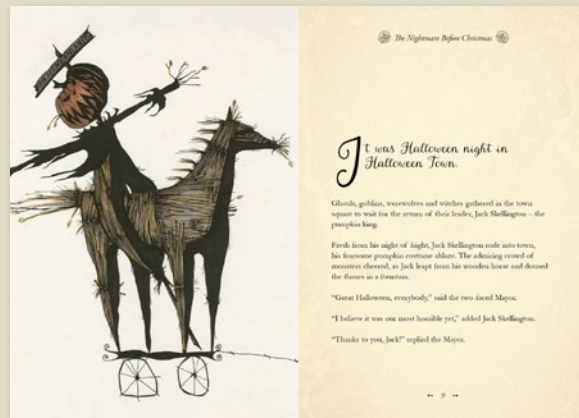 The Nightmare Before Christmas
It was Halloween night in
Halloween Town.
Ghouls, goblins, werewolves and witches gathered in the town
square to wait for the return of their leader, Jack Skellington – the
pumpkin king.
Fresh from his night of fright, Jack Skellington rode into town,
his fearsome pumpkin costume ablaze. The admiring crowd of
monsters cheered, as Jack leapt from his wooden horse and doused
the flames in a fountain.
“Great Halloween, everybody,” said the two-faced Mayor.
“I believe it was our most horrible yet,” added Jack Skellington.
“Thanks to you, Jack!” replied the Mayor.
9